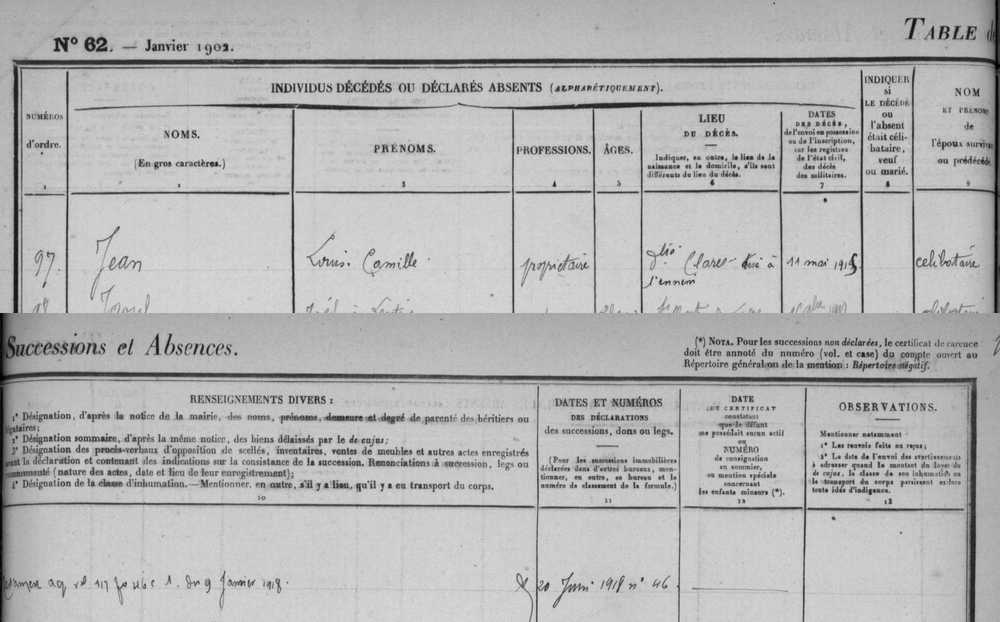 TABLE
N° 62. — Janvier 1902.
INDIVIDUS DÉCÉDÉS OU DÉCLARÉS ABSENTS (ALPHABÉTIQUEMENT).
NUMÉROS
d'ordre.
1
NOMS.
(En gros caractères.)
2
PRÉNOMS.
3
PROFESSIONS.
4
ÂGES.
5
LIEU
DU DÉCÈS.
Indiquer, en outre, le lieu de la
naissance et le domicile, s'ils sont
différents du lieu du décès.
6
DATES
DES DÉCÈS,
de l'envoi en possession
ou de l'inscription,
sur les registres
de l'état civil,
des décès
des militaires.
7
INDIQUER
si
LE DÉCÉDÉ
ou
l'absent
était céli-
bataire,
veuf
ou marié.
8
NOM
ET PRÉNOMS
de
l'époux surviv
ou prédécédé
9
97. Jean Louis Camille propriétaire Clares à 11 mai 1915 celibataire
l'ennemi
Successions et Absences.
(*) NOTA. Pour les successions non déclarées, le certificat de carence
doit être annoté du numéro (vol. et case) du compte ouvert au
Répertoire général ou de la mention : Répertoire négatif.
RENSEIGNEMENTS DIVERS :
1° Désignation, d'après la notice de la mairie, des noms, prénoms, demeure et degré de parenté des héritiers ou
légataires;
2° Désignation sommaire, d'après la même notice, des biens délaissés par le de cujus;
3° Désignation des procès-verbaux d'opposition de scellés, inventaires, ventes de meubles et autres actes enregistrés
avant la déclaration et contenant des indications sur la consistance de la succession. Renonciations à succession, legs ou
communauté (nature des actes, date et lieu de leur enregistrement);
4° Désignation de la classe d'inhumation. — Mentionner, en outre, s'il y a lieu, qu'il y a eu transport du corps.
10
DATES ET NUMÉROS
DES DÉCLARATIONS
des successions, dons ou legs.
(Pour les successions immobilières
déclarées dans d'autres bureaux, men-
tionner, en outre, ce bureau et le
numéro de classement de la formule.)
11
DATE
DU CERTIFICAT
constatant
que le défunt
ne possédait aucun actif
ou
NUMÉRO
de consignation
au sommier,
ou mention spéciale
concernant
les enfants mineurs (*).
12
OBSERVATIONS.
Mentionner notamment :
1° Les renvois faits ou reçus;
2° La date de l'envoi des avertissements
à adresser quand le montant du loyer du
de cujus, la classe de son inhumation ou
le transport du corps paraissent exclure
toute idée d'indigence.
13
vol 117 fo 46 c 1. du 9 Janvier 1918. 20 Juin 1918 n° 46.